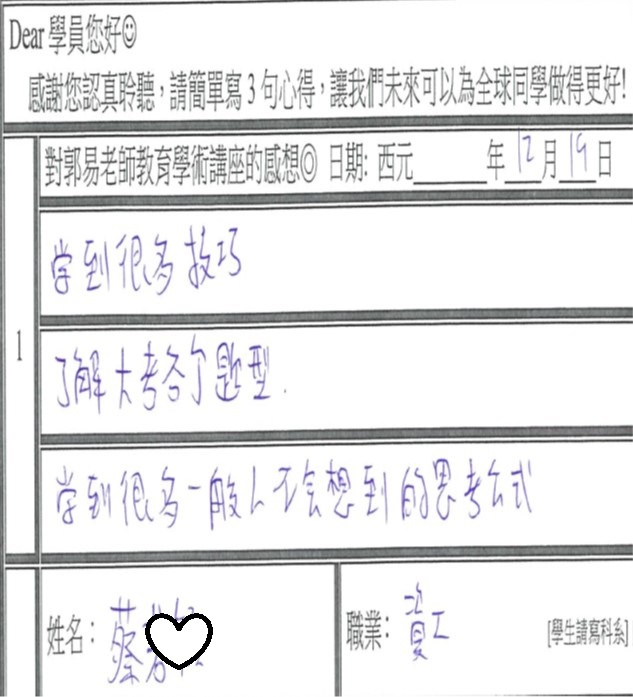 Dear 學員您好☺
感謝您認真聆聽，請簡單寫 3 句心得，讓我們未來可以為全球同學做得更好!
對郭易老師教育學術講座的感想◎ 日期: 西元______年12月19日
1
学到很多技巧
了解大考各个題型.
学到很多一般人不会想到的思考公式
姓名： 蔡
職業: 資工 [學生請寫科系]